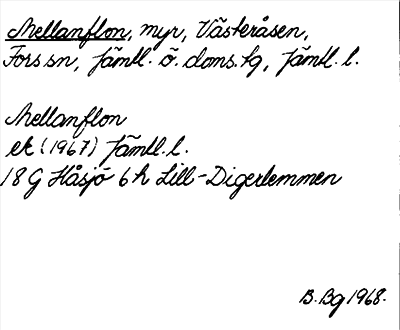 Mellanflon, myr, Västeråsen,
Fors sn, Jämtl. ö. doms. tg, Jämtl. l.
Mellanflon
ek (1967) Jämtl. l.
18 G Håsjö 6 h Lill-Digerlemmen
B. Bg 1968.